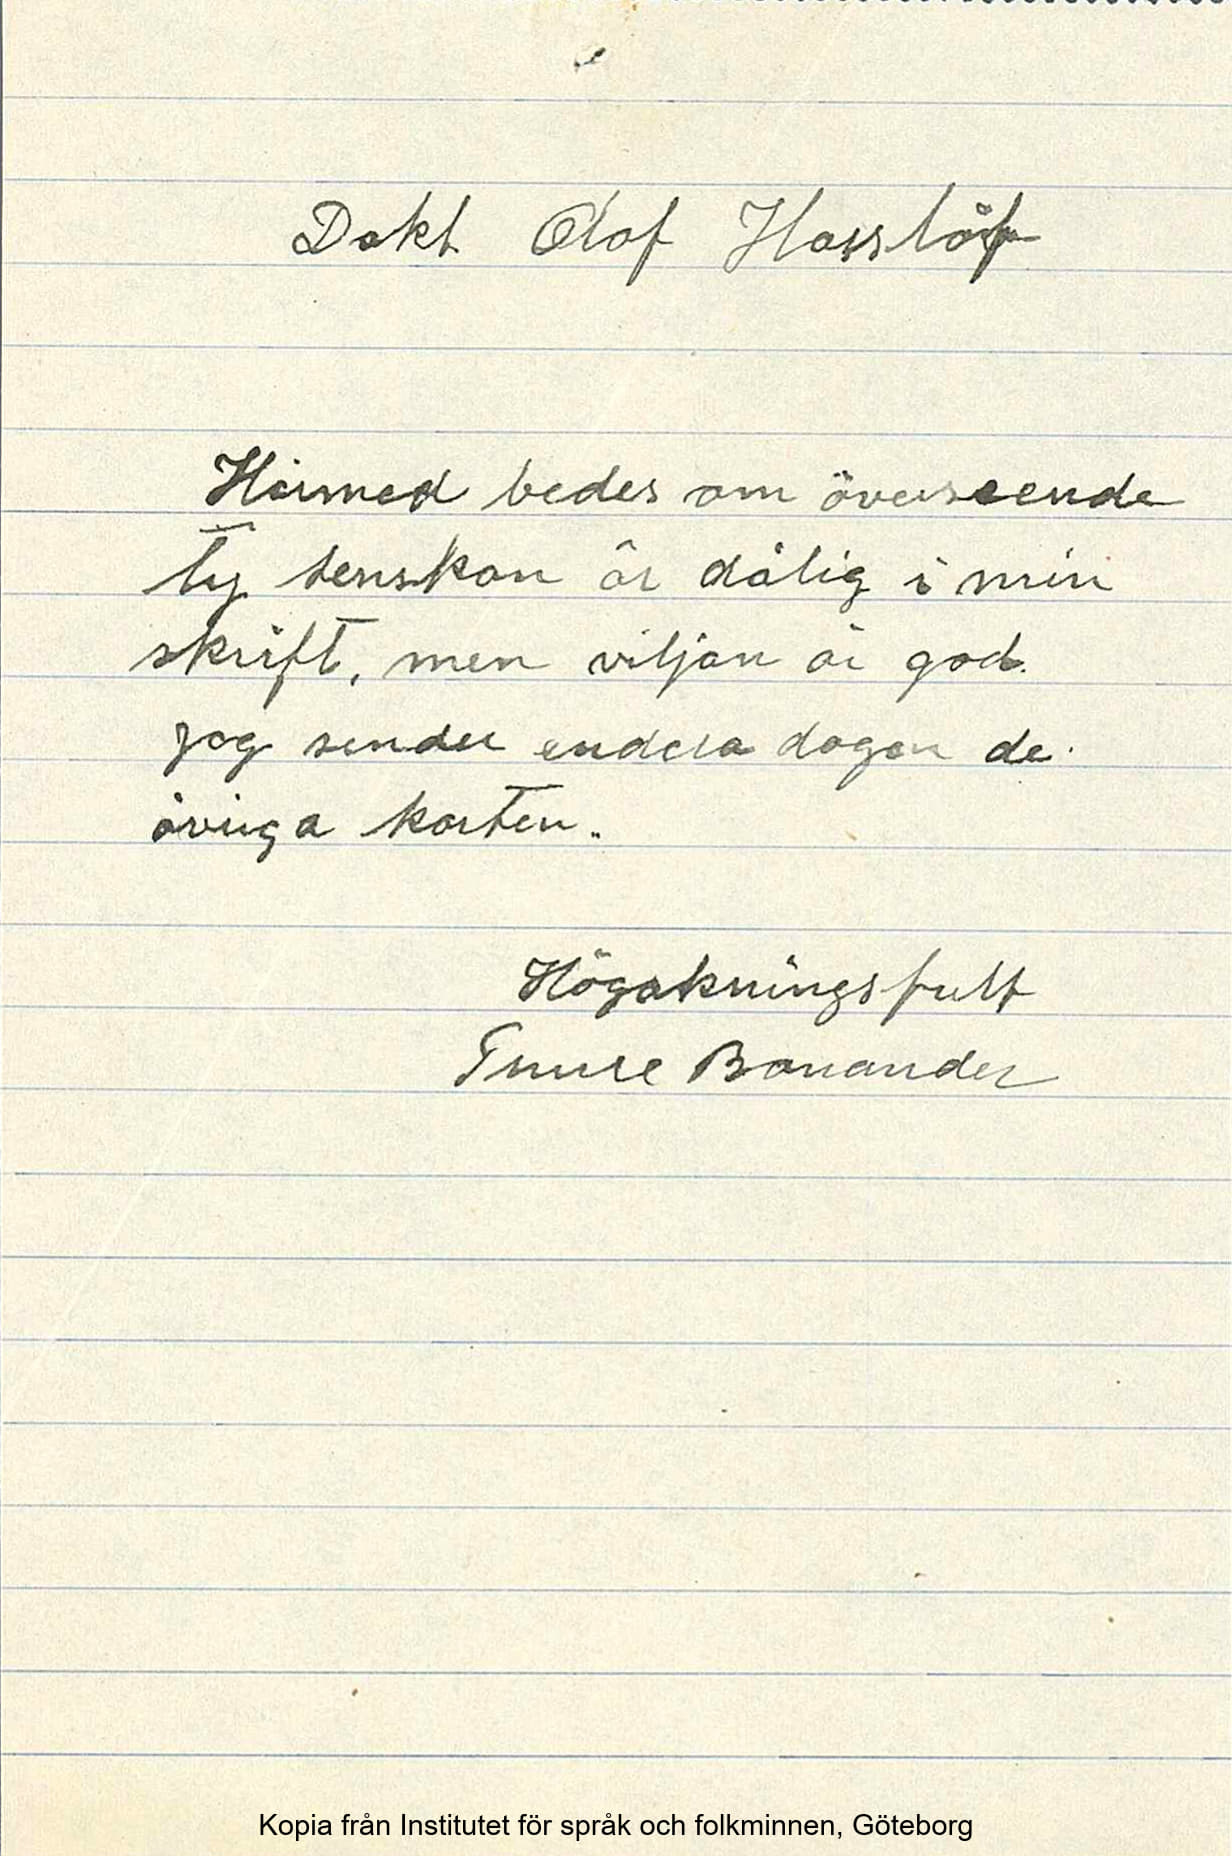 Dokt Olof Hasslöf
Härmed bedes om överseende
ty svenskan är dålig i min
skrift, men viljan är god.
Jag sender endera dagen de
övriga korten.
Högakningsfullt
Thure Bonander
Kopia från Institutet för språk och folkminnen, Göteborg